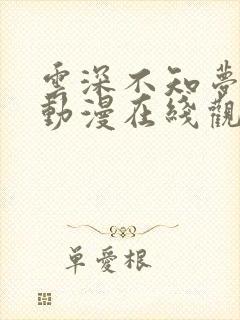 雲深不知夢
動漫在綫觀
單愛根